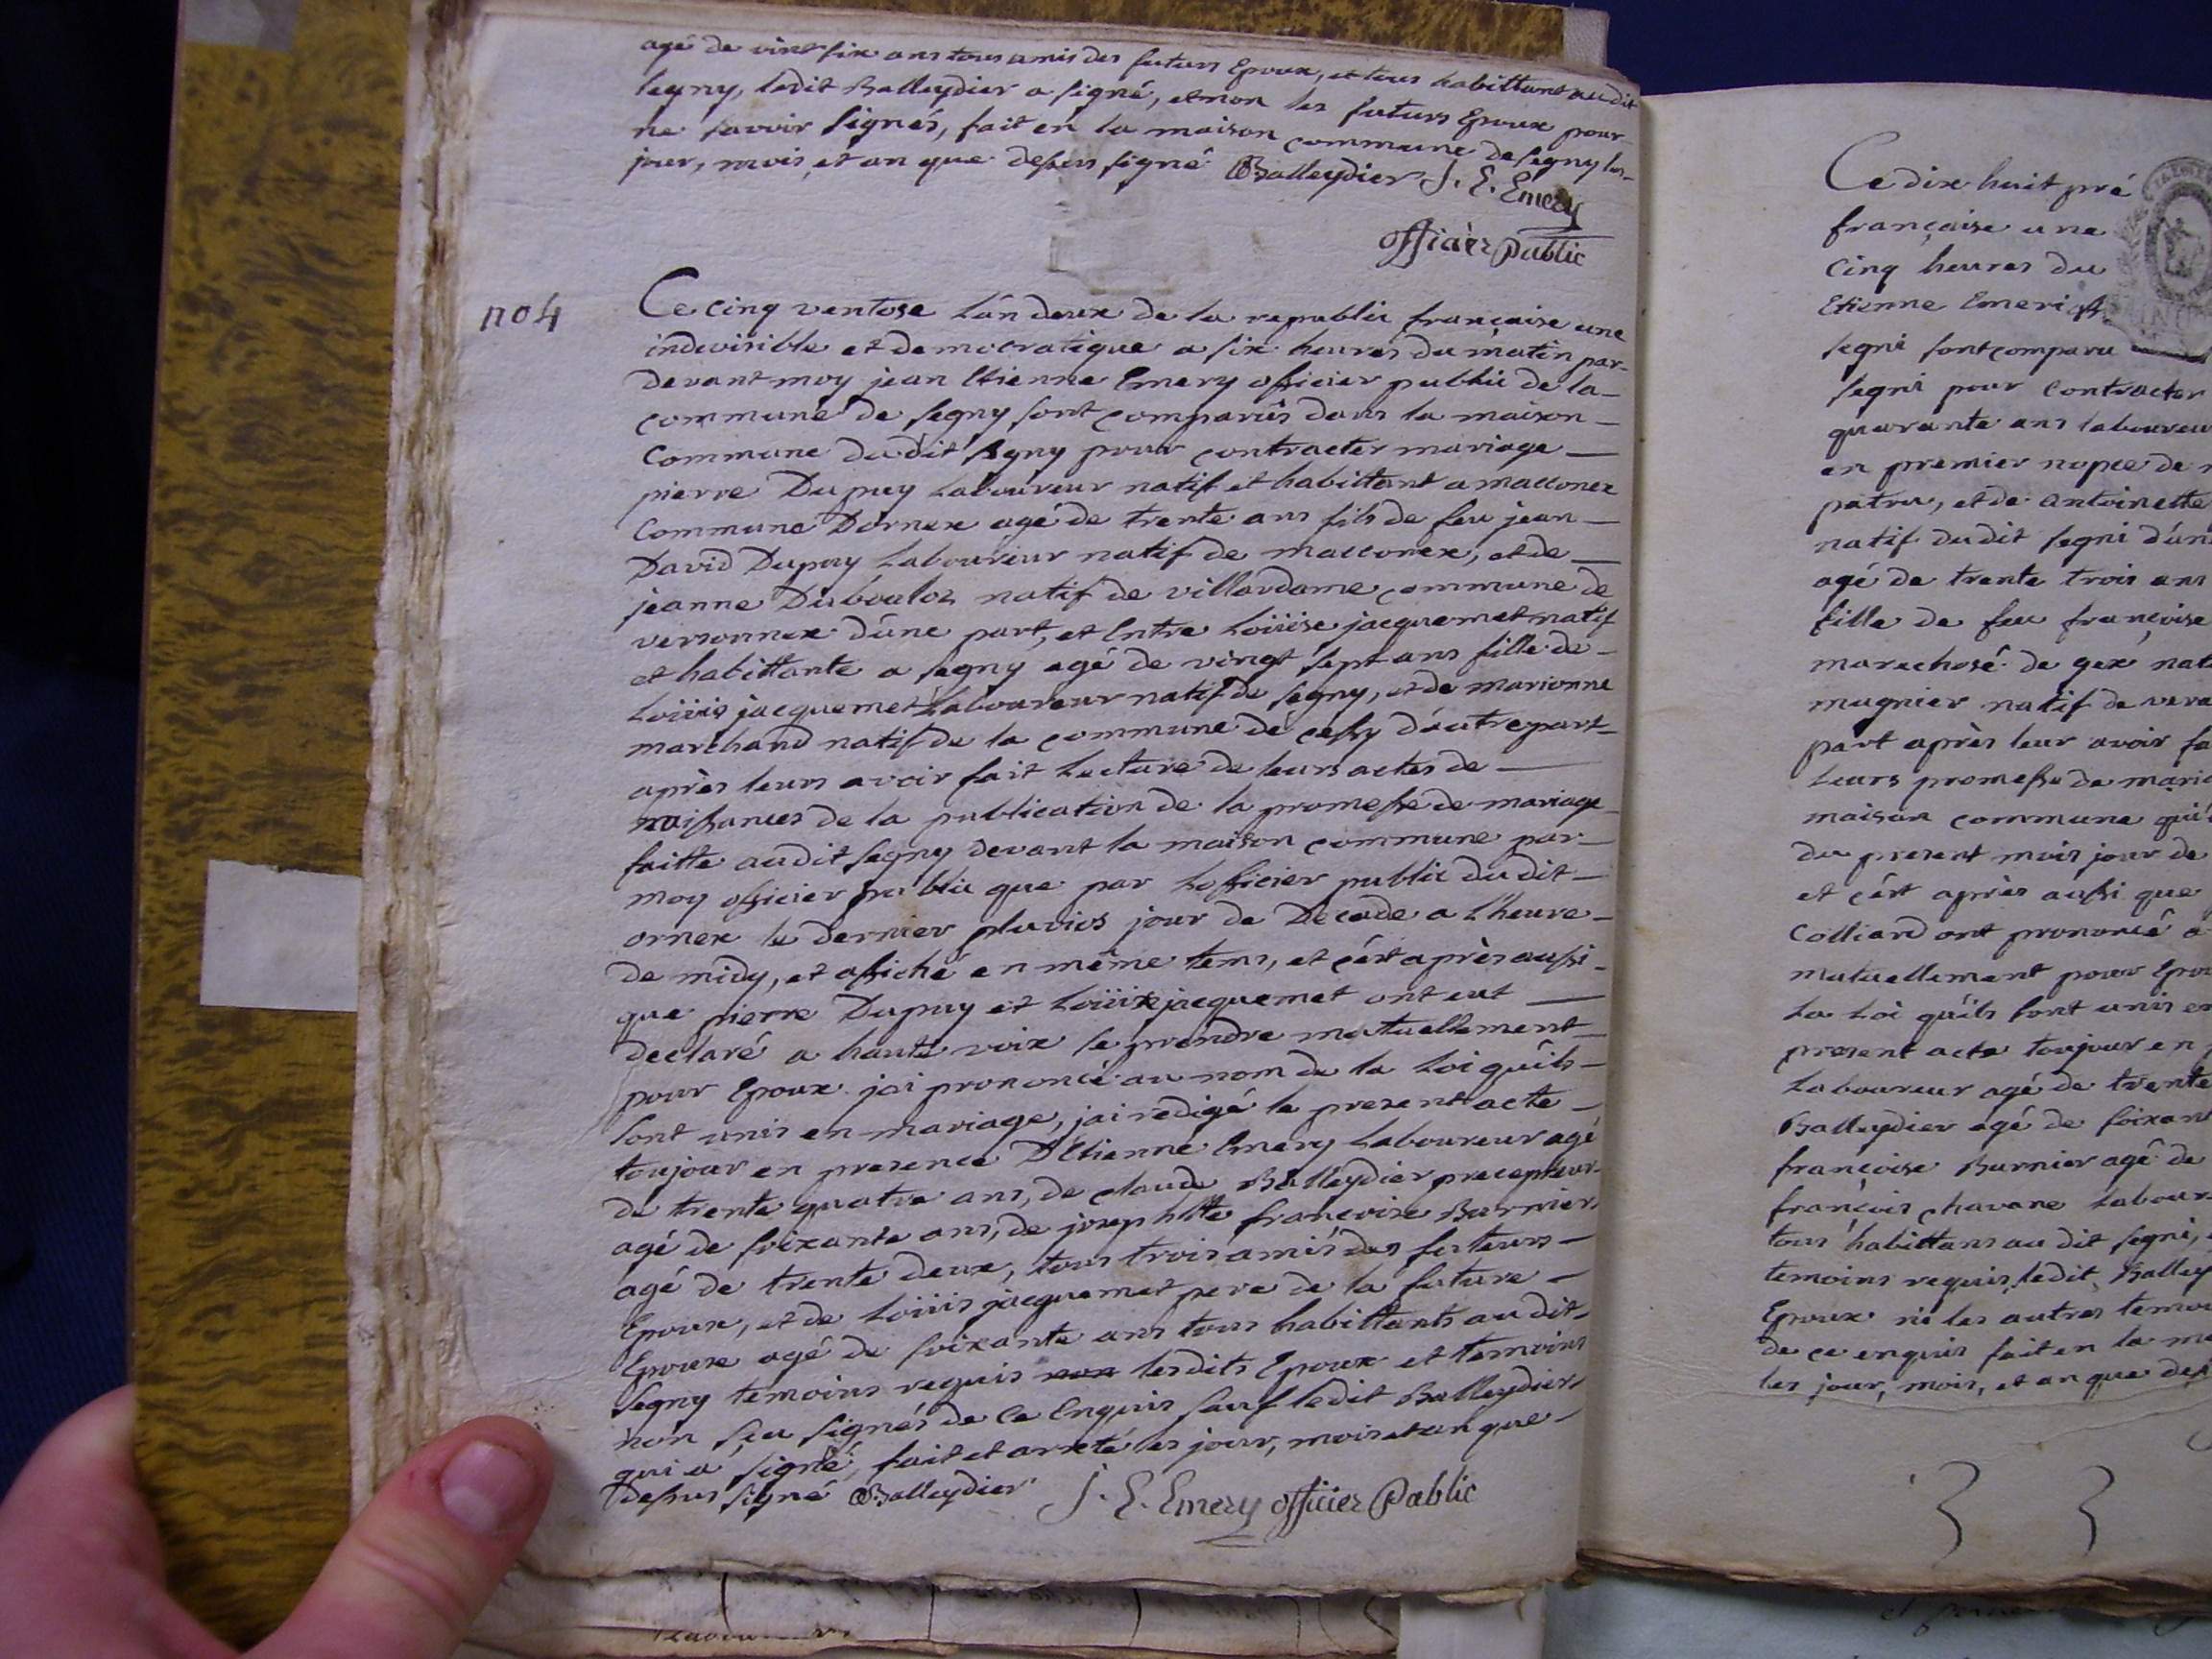 agé de vint six ans tous amis des futurs Epoux, et tous habittant audit
segny, ledit Balleydier a signé, et non les futurs Epoux pour
ne savoir signés, fait en la maison commune de segny les
jour, mois, et an que dessus signé Balleydier J. E. Emery
officier public
no 4
Ce cinq ventose L'an deux de la republic française une
indivisible et democratique a six heures du matin par-
devant moy jean Etienne Emery officier public de la
commune de segny sont comparus dans la maison
Commune du dit segny pour contracter mariage
pierre Dupuy Laboureur natif et habittant a macconex
Commune Dornex agé de trente ans fils de feu jean
David Dupuy Laboureur natif de macconex, et de
jeanne Dubouloz natif de villardame commune de
versonnex d'une part, et Entre Loüise jacquemet natif
et habittante a segny agé de vingt sept ans fille de
Loüis jacquemet Laboureur natif de segny, et de marionne
marchand natif de la commune de cessy d'autre part
après leurs avoir fait Lecture de leurs actes de
naissances de la publication de la promesse de mariage
faitte audit segny devant la maison commune par
moy officier public que par Lofficier public du dit
ornex le dernier pluvios jour de Decade a l'heure
de midy, et affiché en même tems, et c'est après aussi
que pierre Dupuy et Loüise jacquemet ont eut
declaré a haute voix se prendre mutuellement
pour Epoux jai prononcé au nom de la Loi qu'ils
sont unis en mariage, jai redigé le present acte
toujour en presence D'Etienne Emery Laboureur agé
de trente quatre ans, de claude Balleydier precepteur
agé de soixante ans, de josephtte françoise Burnier
agé de trente deux, tous trois amis des futurs
Epoux, et de Loüis jacquemet pere de la future
Epouse agé de soixante ans tous habittants au dit
segny temoins requis non lesdits Epoux et temoins
non seu signés de ce Enquis sauf ledit Balleydier
qui a signé, fait et arreté les jour, mois et an que
dessus signé Balleydier J. E. Emery officier Public
Ce dix huit pré
française une
Cinq heures du
Etienne Emeri
segni sont comparu
segni pour Contracter
quarante ans laboureu
en premier nopce de
patru, et de Antoinette
natif du dit segni d'un
agé de trente trois ans
fille de feu françoise
marechosé de gex nat
mugnier natif de
part après leur avoir fa
Leurs promesse de mari
maison commune qui
du present mois jour de
et c'est après aussi que
Colliard ont prononcé a
mutuellement pour Epou
La Loi qu'ils sont unis en
present acte toujour en
Laboureur agé de trente
Balleydier agé de soixan
françoise Burnier agé de
françois chavane labour
tous habittans au dit segni,
temoins requis, ledit Balley
Epoux ni les autres temoi
de ce enquis fait en la ma
les jour, mois, et an que des